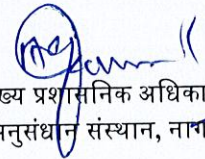 ख्य प्रशासनिक अधिका
नुसंधान संस्थान, नाग